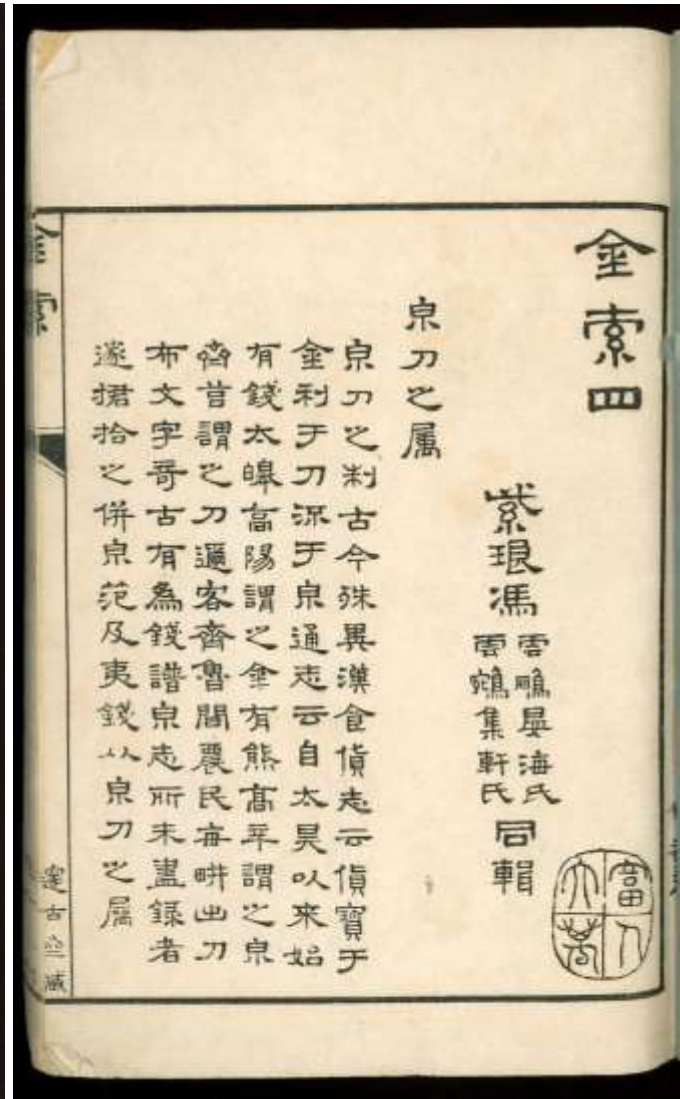 金索四
紫琅馮
雲鵬晏海氏
雲鵷集軒氏
同輯
泉刀之属
泉刀之制古今殊異漢食貨志云貨寶于
金利于刀流于泉通志云自太昊以來始
有錢太皞高陽謂之金有熊高辛謂之泉
齊莒謂之刀邇客齊魯間農民每畊出刀
布文字奇古有為錢譜泉志所未盡録者
遂捃拾之併泉范及夷錢从泉刀之属
金索
邃古齋藏